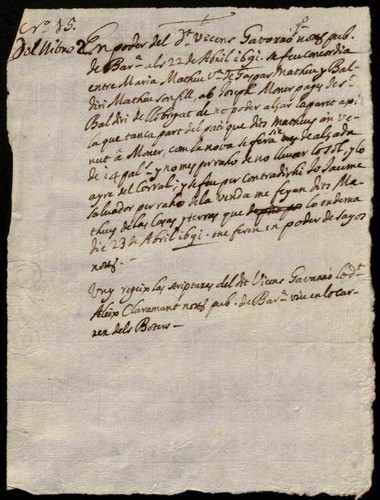 N.º 85.
Del llibro 2 En poder del D.r Vicens Gavarró q.º not.i pub.
de Bar.na als 22 de Abril 1691. se feu concordia
entre Maria Mathiu V.da de Gaspar Mathiu y Bal
diri Mathiu son fill, ab Joseph Moner pages de S.t
Baldiri de Llobregat de no poder alsar la paret api
la que tanca part del pati que dits Mathius an ve
nut â Moner, con la nova se fera sino de alsada
de 14 pal.s y no mes per raho de no llevar lo sol, y lo
ayre del Corral; y se feu per contradirhi lo Jaume
Salvador per raho de la venda me feyan dits Ma
thius de las Casas, y terras que lo endema
die 23 de Abril 1691. me feren en poder de Sayos
not.i
Vuy regeix las scripturas del dit Vicens Gavarró lo d.t
Aleix Claramunt not.i pub. de Bar.na viu en lo car
rer dels Boters